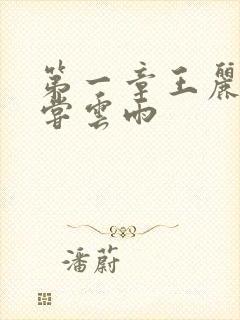 第一章王麗
嘗雲雨
潘蔚